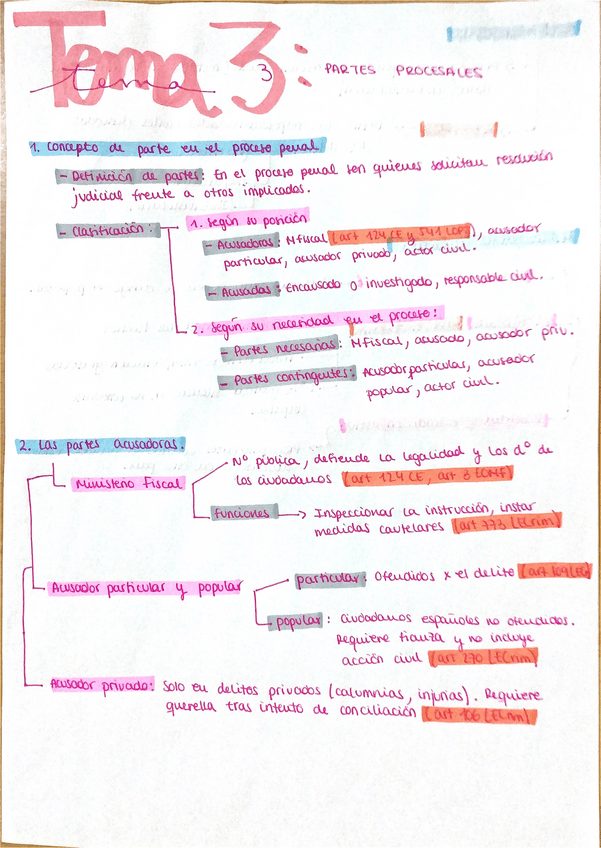 Tema 3:
tema 3
PARTES PROCESALES
1. Concepto de parte en el proceso penal
- Definición de partes: En el proceso penal son quienes solicitan resolución
judicial frente a otros implicados.
- Clasificación:
1. Según su posición
- Acusadoras: Mfiscal (art 124 CE y 541 LOPJ), acusador
particular, acusador privado, actor civil.
- Acusadas: Encausado o investigado, responsable civil.
2. Según su necesidad en el proceso:
- Partes necesarias: Mfiscal, acusado, acusador priv.
- Partes contingentes: Acusador particular, acusador
popular, actor civil.
2. Las partes acusadoras.
Ministerio Fiscal
Nº pública, defiende la legalidad y los dº de
los ciudadanos (art 124 CE, art 3 EOMF)
funciones → Inspeccionar la instrucción, instar
medidas cautelares (art 773 LECrim)
Acusador particular y popular
particular: Ofendidos x el delito (art 109
popular: ciudadanos españoles no ofendidos.
Requiere fianza y no incluye
acción civil (art 270 LECrim)
Acusador privado: Solo en delitos privados (calumnias, injurias). Requiere
querella tras intento de conciliación (art 106 LECrim)